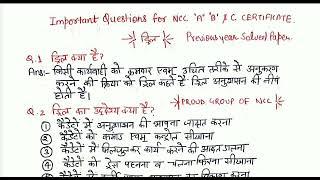 Important Questions for NCC "A" "B" & C CERTIFICATE.
ड्रिल
Previous year Solved Paper.
Q.1 ड्रिल क्या है?
Ans:- किसी कार्यवाही को क्रमवार एवम् उचित तरीके से अनुकरण
करने की क्रिया को ड्रिल कहते हैं ड्रिल अनुशासन की नींव
होती है।
PROUD GROUP OF NCC
Q.2 ड्रिल का उद्देश्य क्या है?
① कैडेटों में अनुशासन की भावना जागृत करना
② कैडेटों को कमांड एवम् कंट्रोल सीखाना
③ कैडेटों में मिलजुलकर कार्य करने की आदत डालना
④ कैडेटों को ड्रेस पहनना व चलना फिरना सीखाना